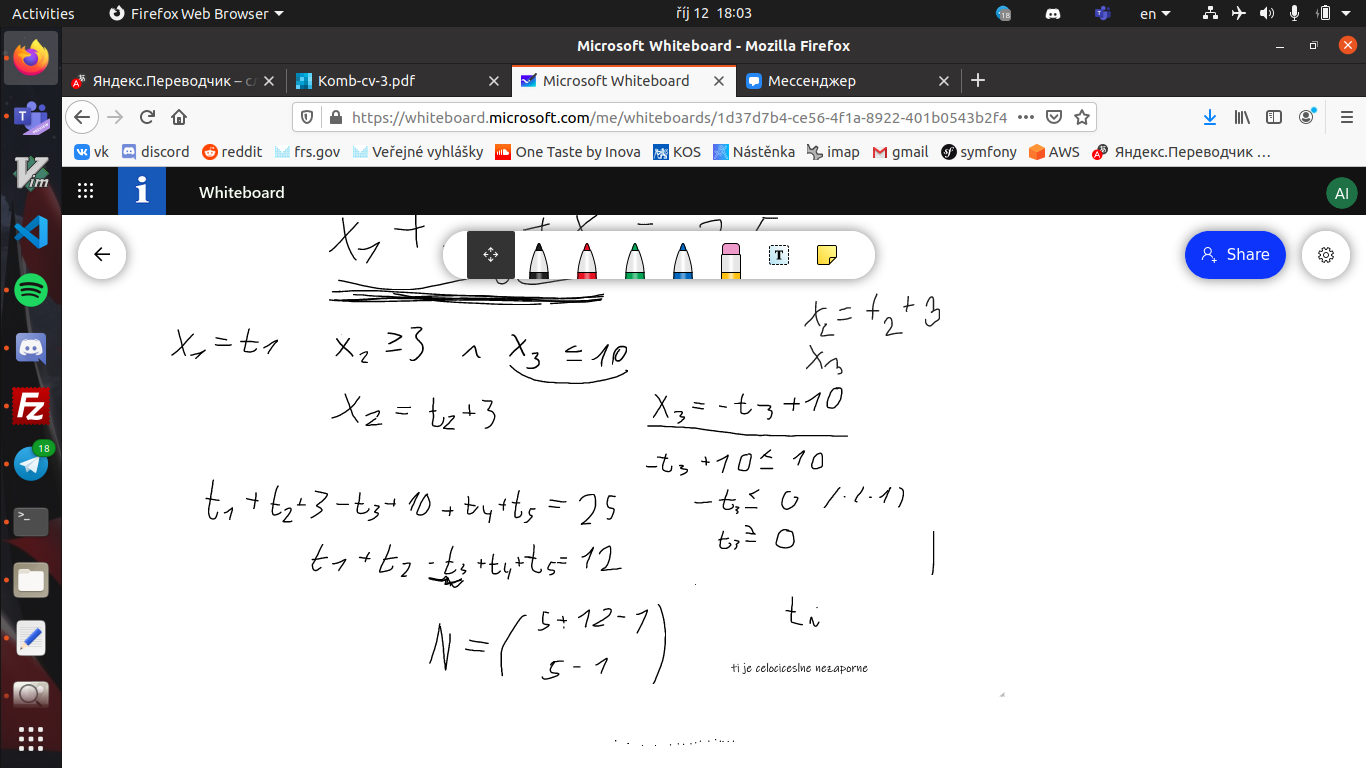 Activities Firefox Web Browser říj 12 18:03 18 en
Microsoft Whiteboard - Mozilla Firefox
Komb-cv-3.pdf Microsoft Whiteboard Мессенджер
https://whiteboard.microsoft.com/me/whiteboards/1d37d7b4-ce56-4f1a-8922-401b0543b2f4
vk discord reddit frs.gov Veřejné vyhlášky One Taste by Inova KOS Nástěnka imap gmail symfony AWS Яндекс.Переводчик …
Whiteboard AI
T Share
x₂ = t₂ + 3
x₁ = t₁ x₂ ≥ 3 ∧ x₃ ≤ 10
x₃
x₂ = t₂ + 3 x₃ = -t₃ + 10
-t₃ + 10 ≤ 10
t₁ + t₂ + 3 - t₃ + 10 + t₄ + t₅ = 25 -t₃ ≤ 0 /·(-1)
t₁ + t₂ - t₃ + t₄ + t₅ = 12 t₃ ≥ 0
N = (5 + 12 - 1
5 - 1) tᵢ
ti je celociceslne nezaporne
18